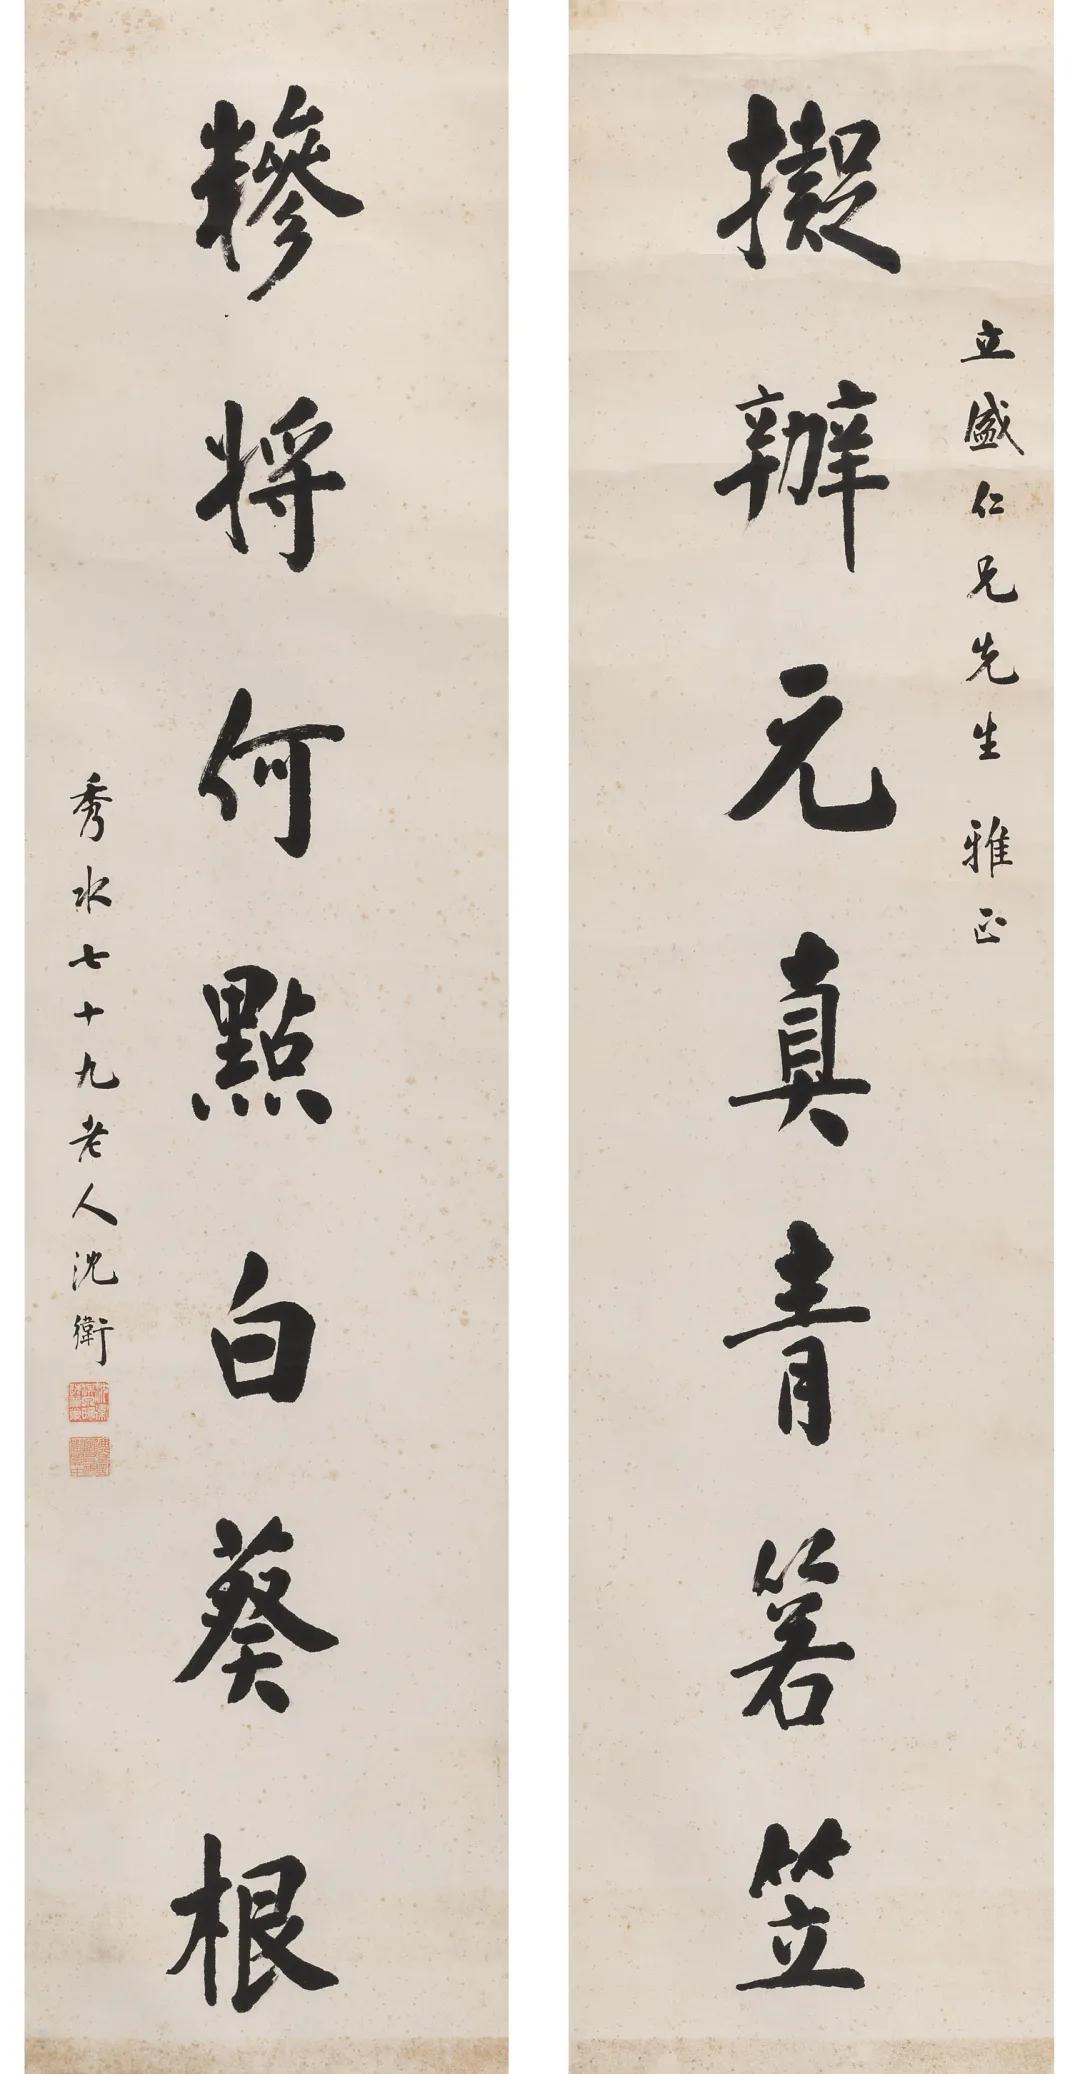 立盛仁兄先生 雅正
擬辦元真青箬笠
糝將何點白葵根
秀水七十九老人沈衛